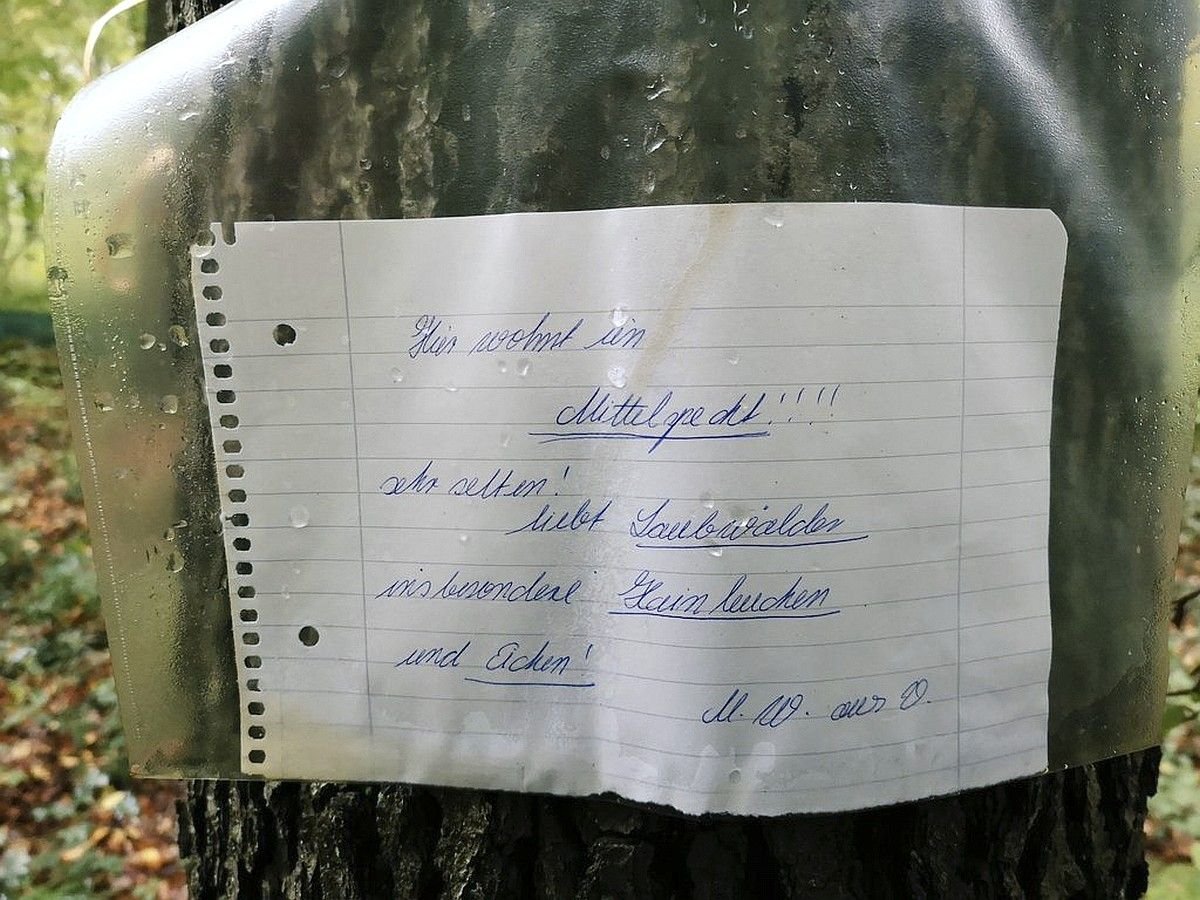 Hier wohnt ein
Mittelspecht!!!!
sehr selten!
liebt Laubwälder
insbesondere Hainbuchen
und Eichen!
M. W. aus O.